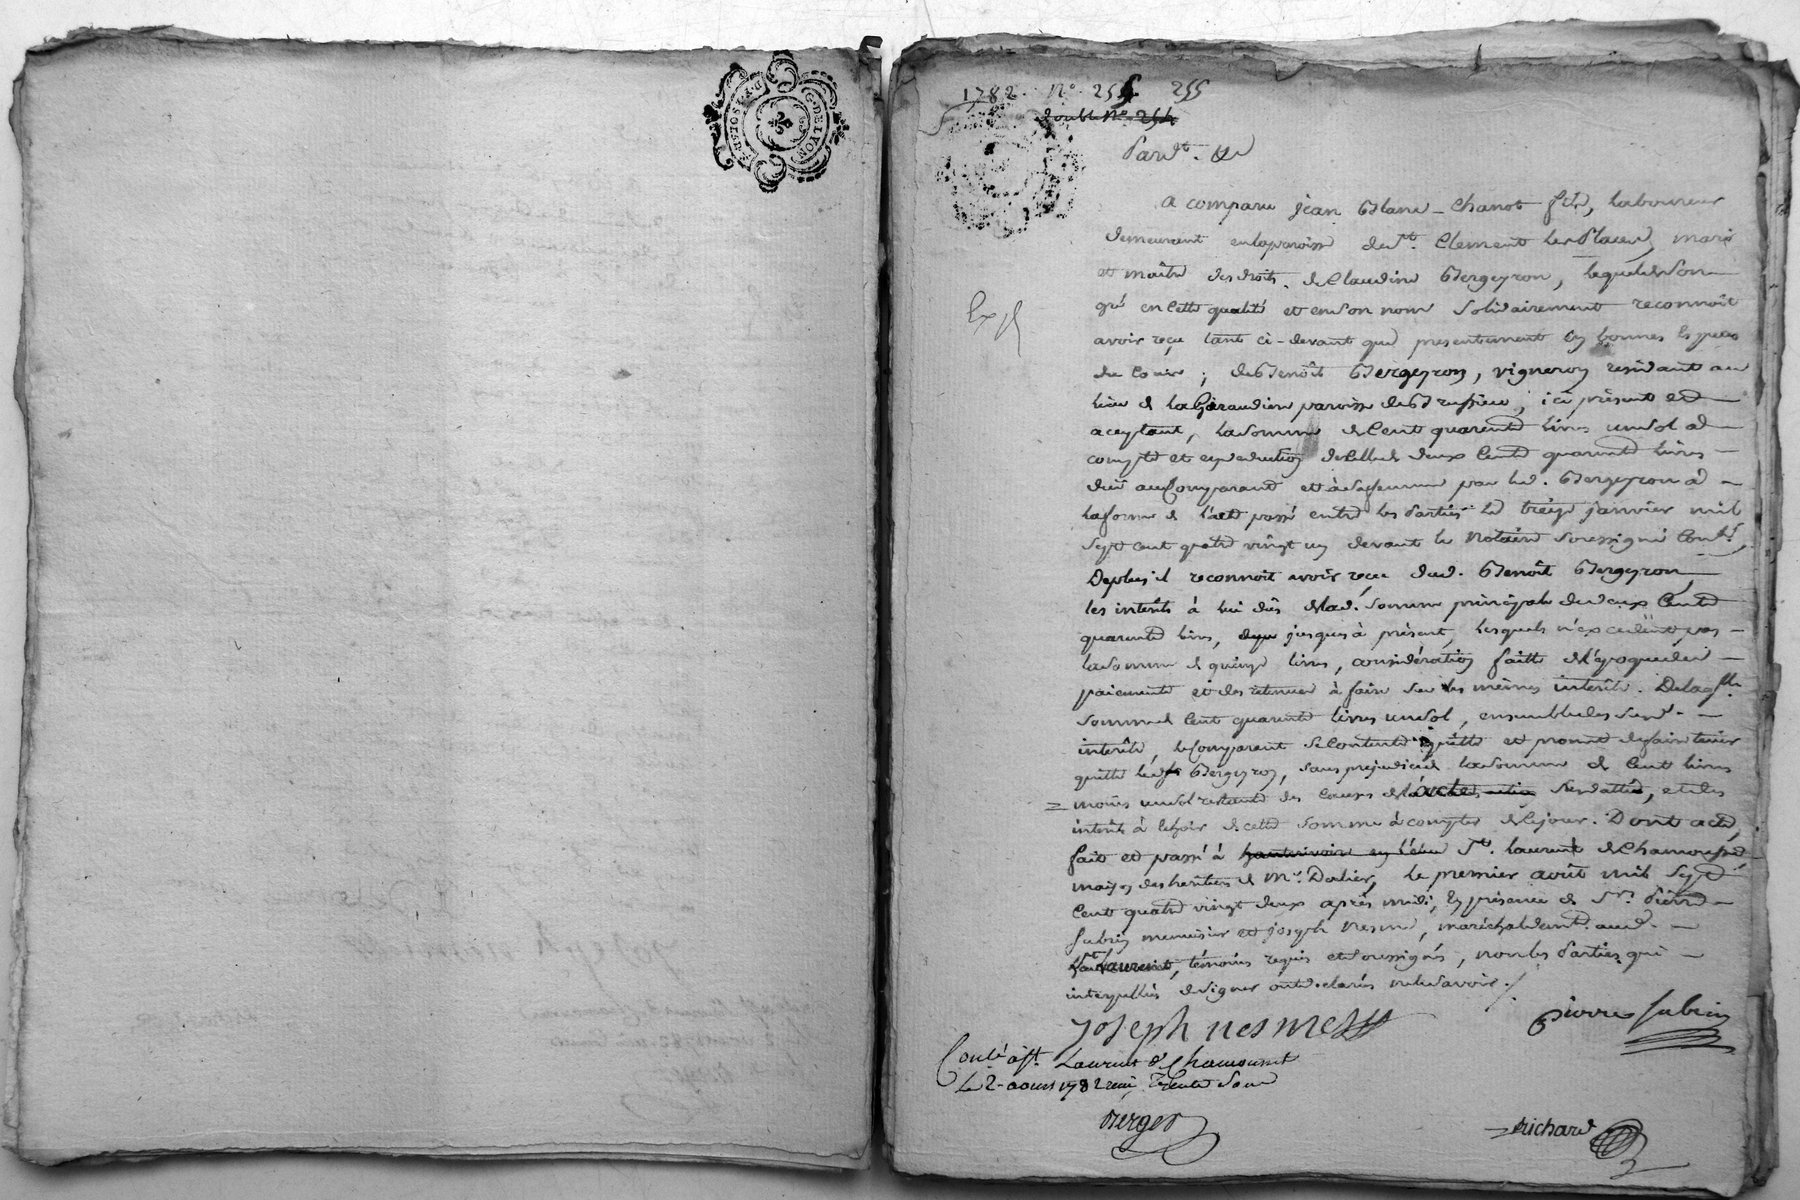 G. DE LYON
1782. N° 254 255
double N° 254
Pardt. &c
A comparu jean Blanc-Chanot fils, laboureur
demeurant en la paroisse de St. Clement les Places, mari
et maître des droits de Claudine Bergeyron, lequel de son
gré en cette qualité et en son nom solidairement reconnoît
avoir reçu tant ci-devant que presentement en bonnes especes
de cours; de Benoît Bergeyron, vigneron residant au
lieu de la Giraudiere paroisse de Brussieu, ici présent et
aceptant, la somme de Cent quarente livres un sol a
compte et en deduction de celle de deux Cents quarente livres
due au Comparant et à sa femme par led. Bergeyron a
la forme de l'acte passé entre les parties le treize janvier mil
sept cent quatre vingt un devant le Notaire soussigné Conlé.
De plus il reconnoit avoir reçu dud. Benoît Bergeyron,
les interêts à lui dûs de lad. somme principale de deux Cents
quarente livres, jusques à présent, lesquels n'excedent pas
la somme de quinze livres, considération faitte de l'epoque des
paiements et des retenues à faire sur les mêmes interêts. De laqlle.
somme de Cent quarente livres un sol, ensemble des susd.
interêts, le Comparant se contente quitte et promet de faire tenir
quitte led. Bergeyron, sans prejudice de la somme de Cent livres
moins un sol restante des causes de l'acte susdatté, et des
interêts à échoir de cette somme à compter de ce jour. Dont acte,
fait et passé à hauterivoire en l'étude St. laurent de Chamousset
maison des heritiers de Mr. Dalier, le premier août mil sept
Cent quatre vingt deux après midi, en présence de Srs. Pierre
Subrin menuisier et joseph Nesme, maréchal demt. aud.
St. Laurent, témoins requis et soussignés, non les parties qui
interpellées de signer ont declarés ne le savoir./.
Exp
joseph nesme
pierre subrin
Conlé à St. Laurent de Chamousset
le 2 aoust 1782 reçu trente sous
Berger
Richard